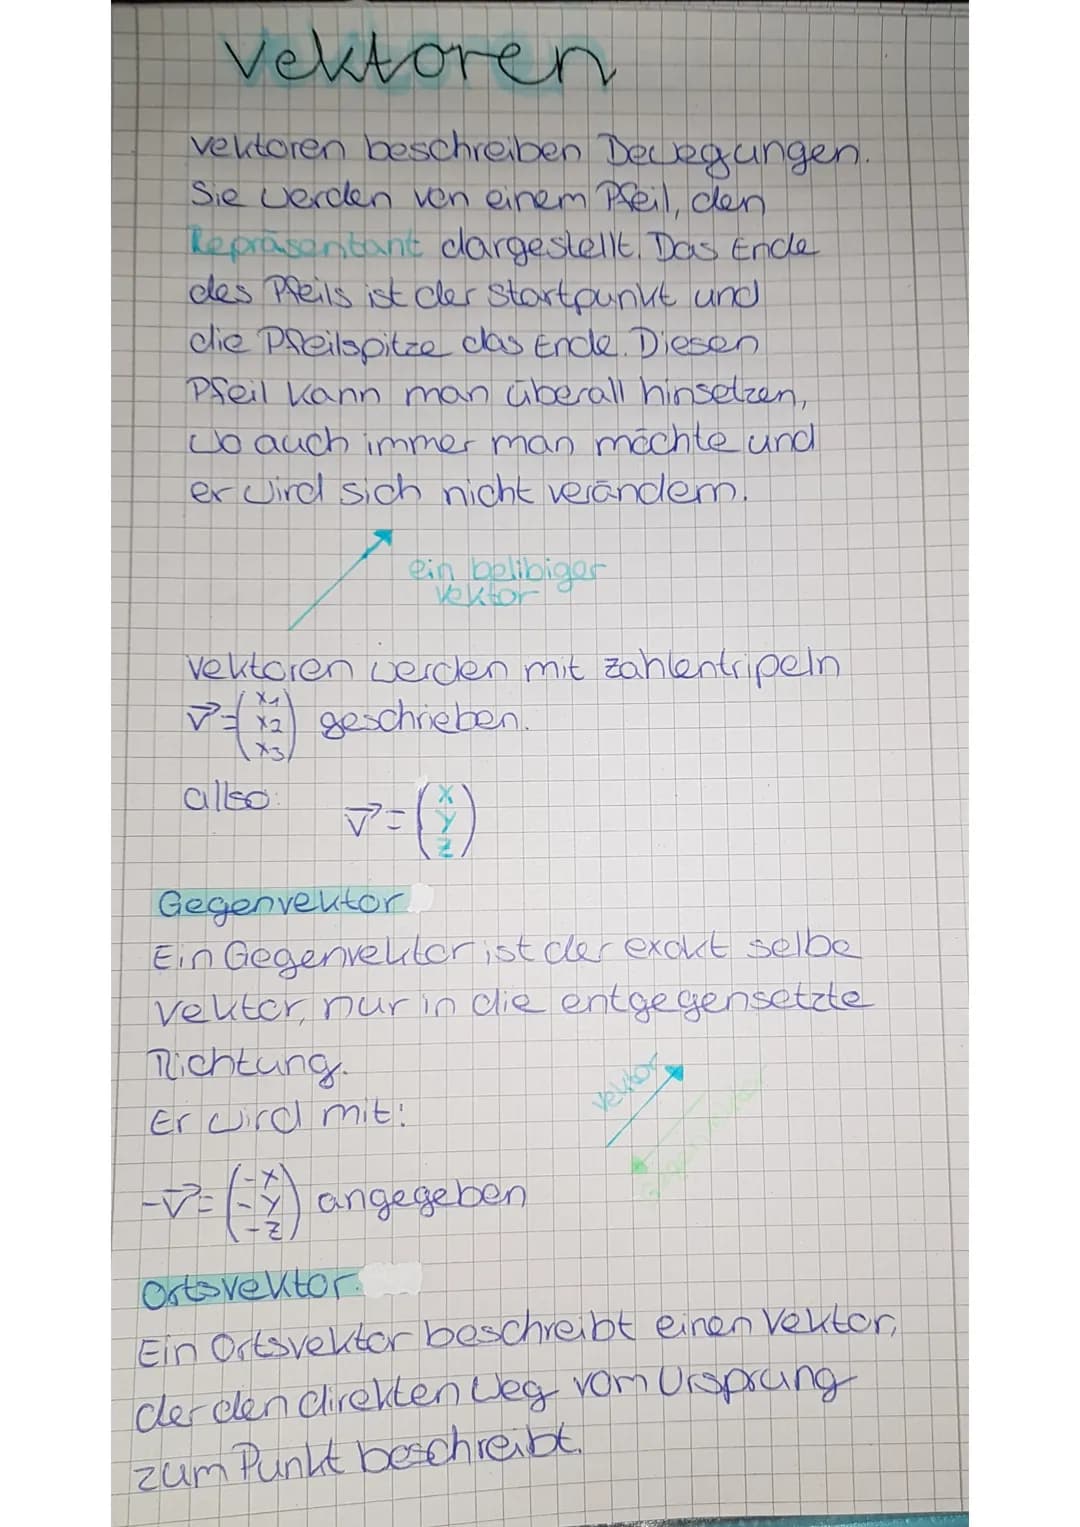 Vektoren
Vektoren beschreiben Bewegungen.
Sie werden von einem Pfeil, den
Repräsentant dargestellt. Das Ende
des Pfeils ist der Startpunkt und
die Pfeilspitze das Ende. Diesen
Pfeil kann man überall hinsetzen,
wo auch immer man möchte und
er wird sich nicht verändern.
ein belibiger
Vektor
Vektoren werden mit Zahlentripeln
v⃗ = (x1 x2 x3) geschrieben.
allso: v⃗ = (x y z)
Gegenvektor
Ein Gegenvektor ist der exakt selbe
Vektor, nur in die entgegensetzte
Richtung.
Vektor
Gegenvektor
Er wird mit:
-v⃗ = (-x -y -z) angegeben
Ortsvektor.
Ein Ortsvektor beschreibt einen Vektor,
der den direkten Weg vom Ursprung
zum Punkt beschreibt.